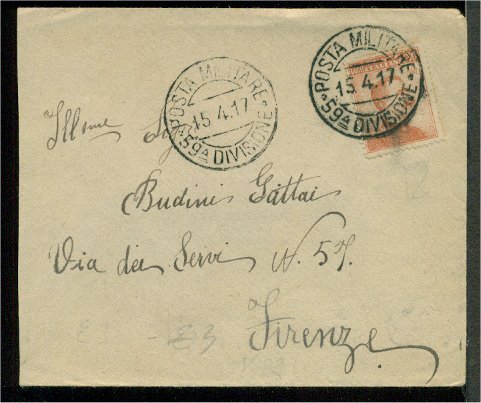 POSTA MILITARE
15.4.17
59A DIVISIONE
POSTA MILITARE
15.4.17
59A DIVISIONE
Illsme
Budini Gattai
Via dei Servi N. 57.
Firenze